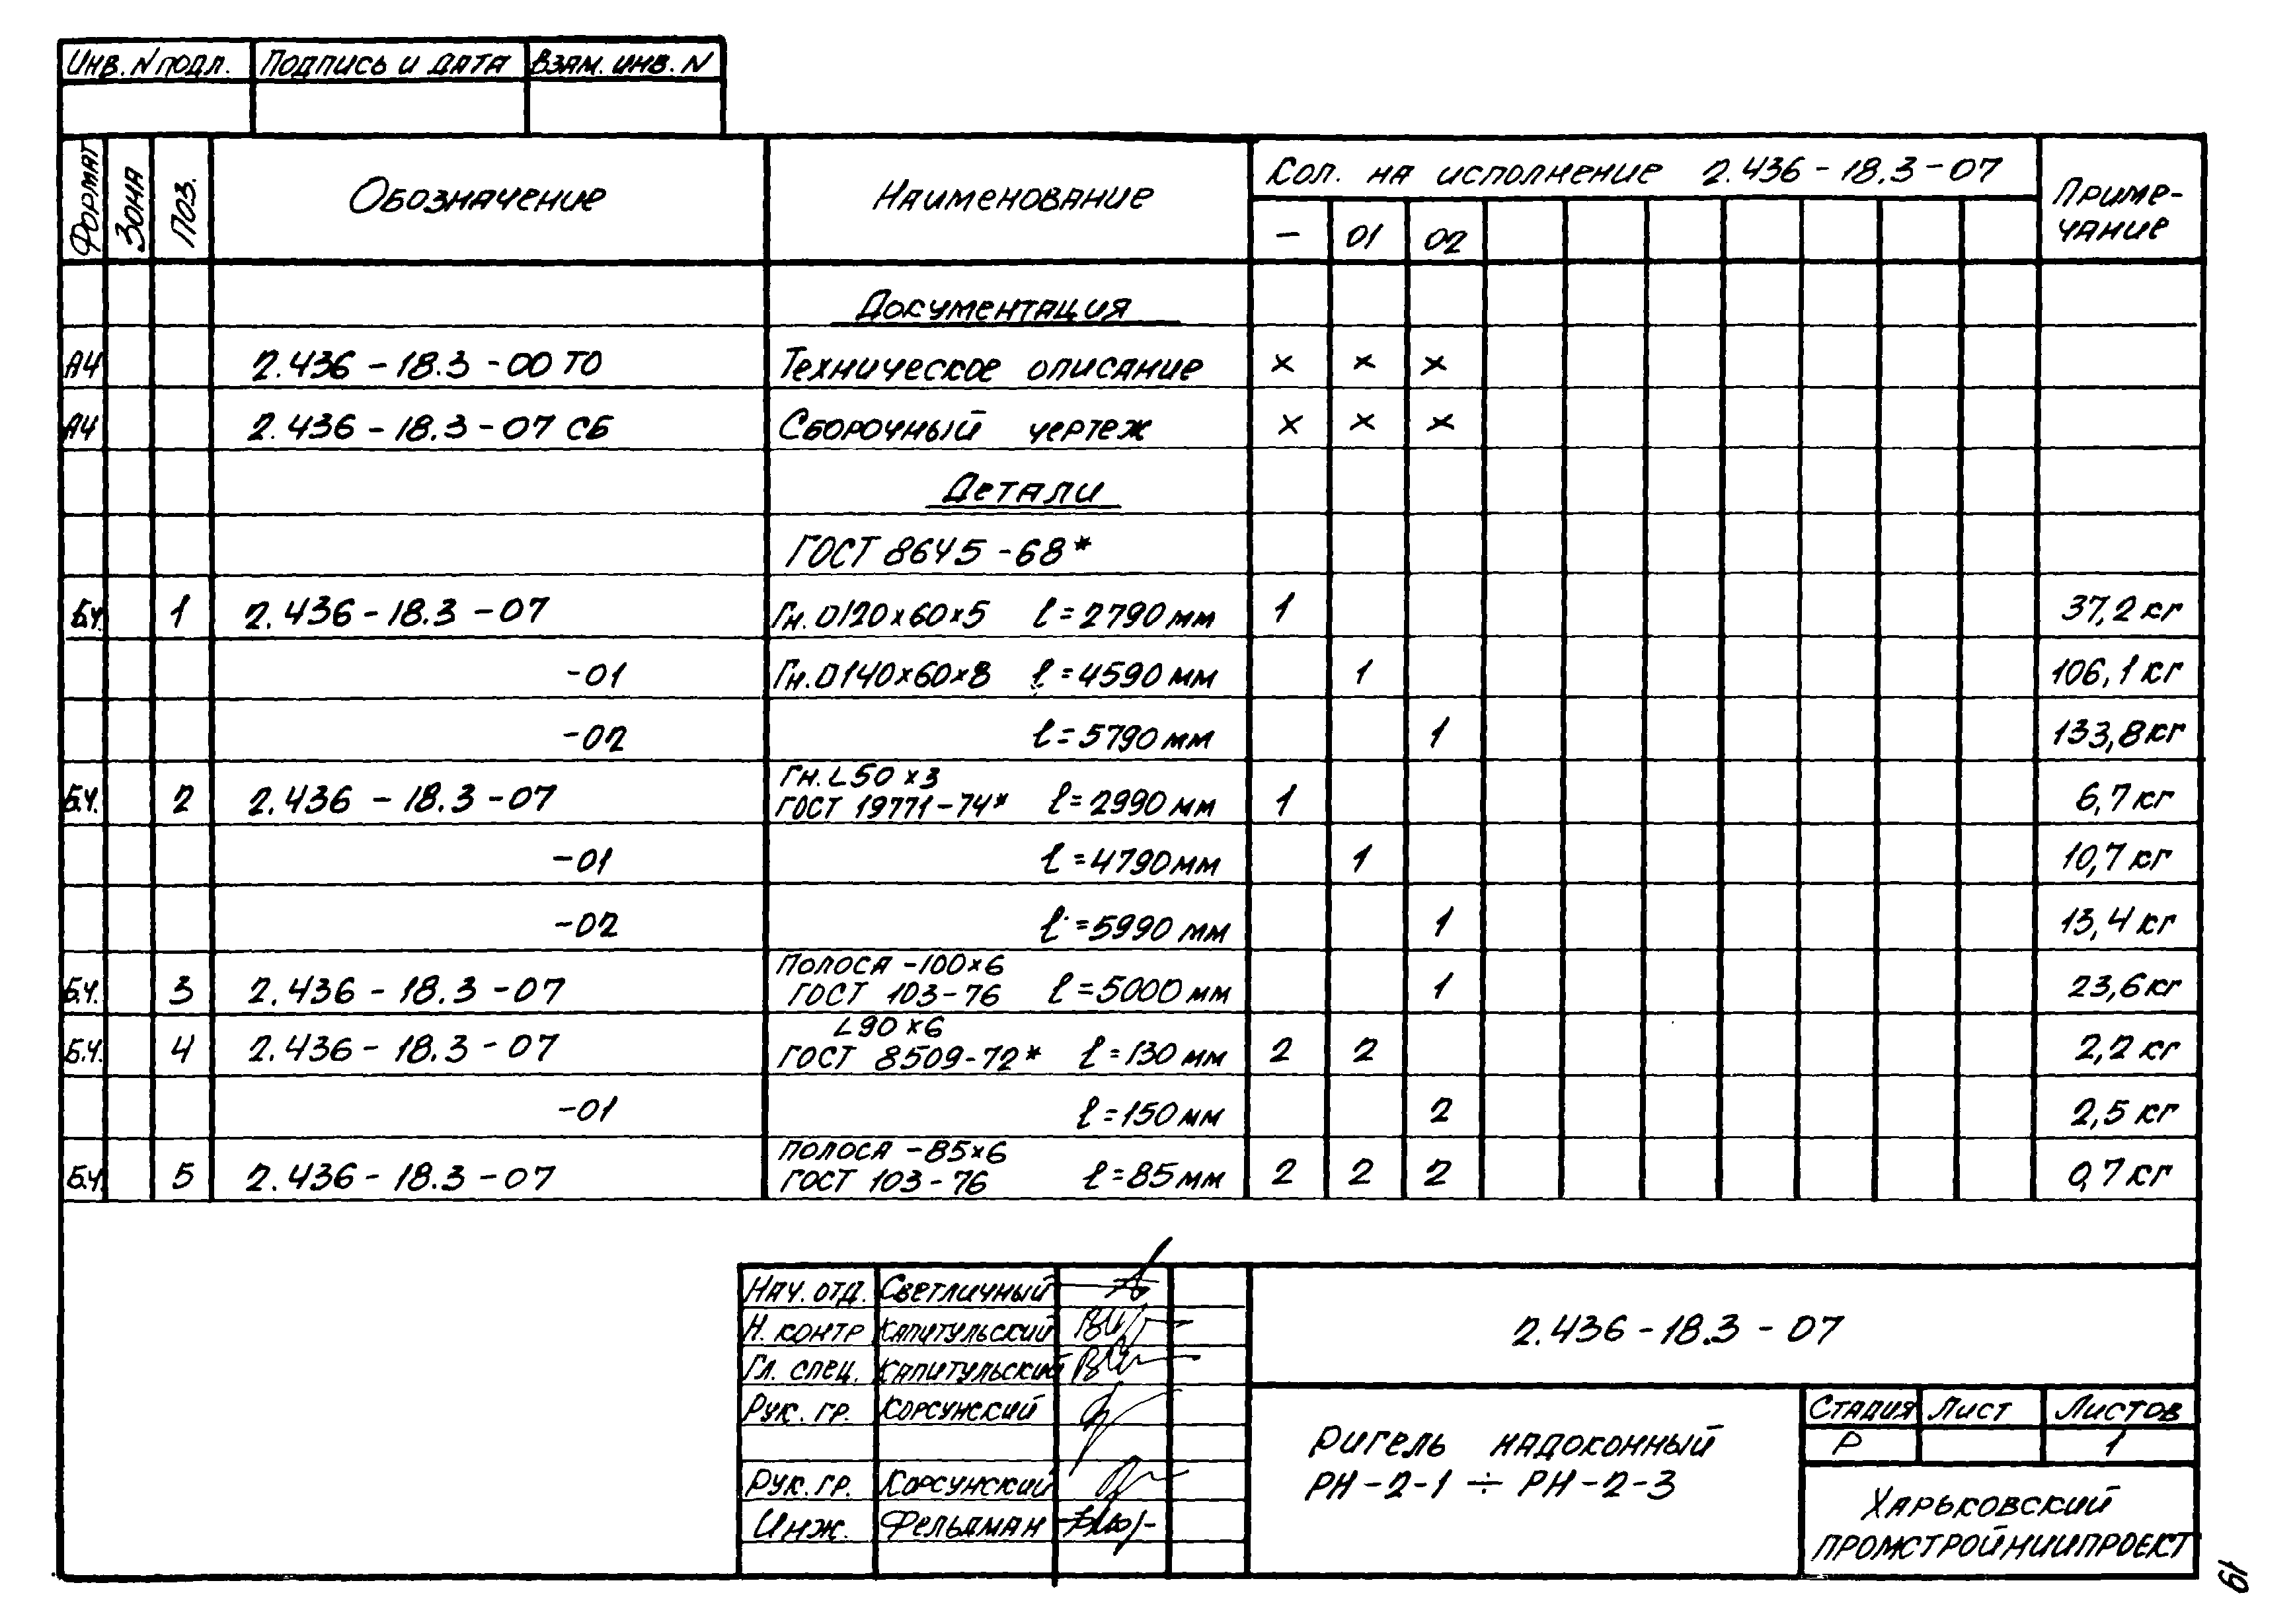 Инв. N подл. Подпись и дата Взам. инв. N
Формат Зона Поз. Обозначение Наименование Кол. на исполнение 2.436-18.3-07 Приме-
чание
- 01 02
Документация
А4 2.436-18.3-00 ТО Техническое описание × × ×
А4 2.436-18.3-07 СБ Сборочный чертеж × × ×
Детали
ГОСТ 8645-68*
Б.Ч. 1 2.436-18.3-07 Гн.□120×60×5 ℓ=2790 мм 1 37,2 кг
-01 Гн.□140×60×8 ℓ=4590 мм 1 106,1 кг
-02 ℓ=5790 мм 1 133,8 кг
Гн.L50×3
Б.Ч. 2 2.436-18.3-07 ГОСТ 19771-74* ℓ=2990 мм 1 6,7 кг
-01 ℓ=4790 мм 1 10,7 кг
-02 ℓ=5990 мм 1 13,4 кг
Полоса -100×6
Б.Ч. 3 2.436-18.3-07 ГОСТ 103-76 ℓ=5000 мм 1 23,6 кг
L90×6
Б.Ч. 4 2.436-18.3-07 ГОСТ 8509-72* ℓ=130 мм 2 2 2,2 кг
-01 ℓ=150 мм 2 2,5 кг
Полоса -85×6
Б.Ч. 5 2.436-18.3-07 ГОСТ 103-76 ℓ=85 мм 2 2 2 0,7 кг
Нач. отд. Светличный
Н. контр Капитульский
Гл. спец. Капитульский
Рук. гр. Корсунский
Рук. гр. Корсунский
Инж. Фельдман
2.436-18.3-07
Ригель надоконный
РН-2-1 ÷ РН-2-3
Стадия Лист Листов
Р 1
Харьковский
Промстройниипроект
19